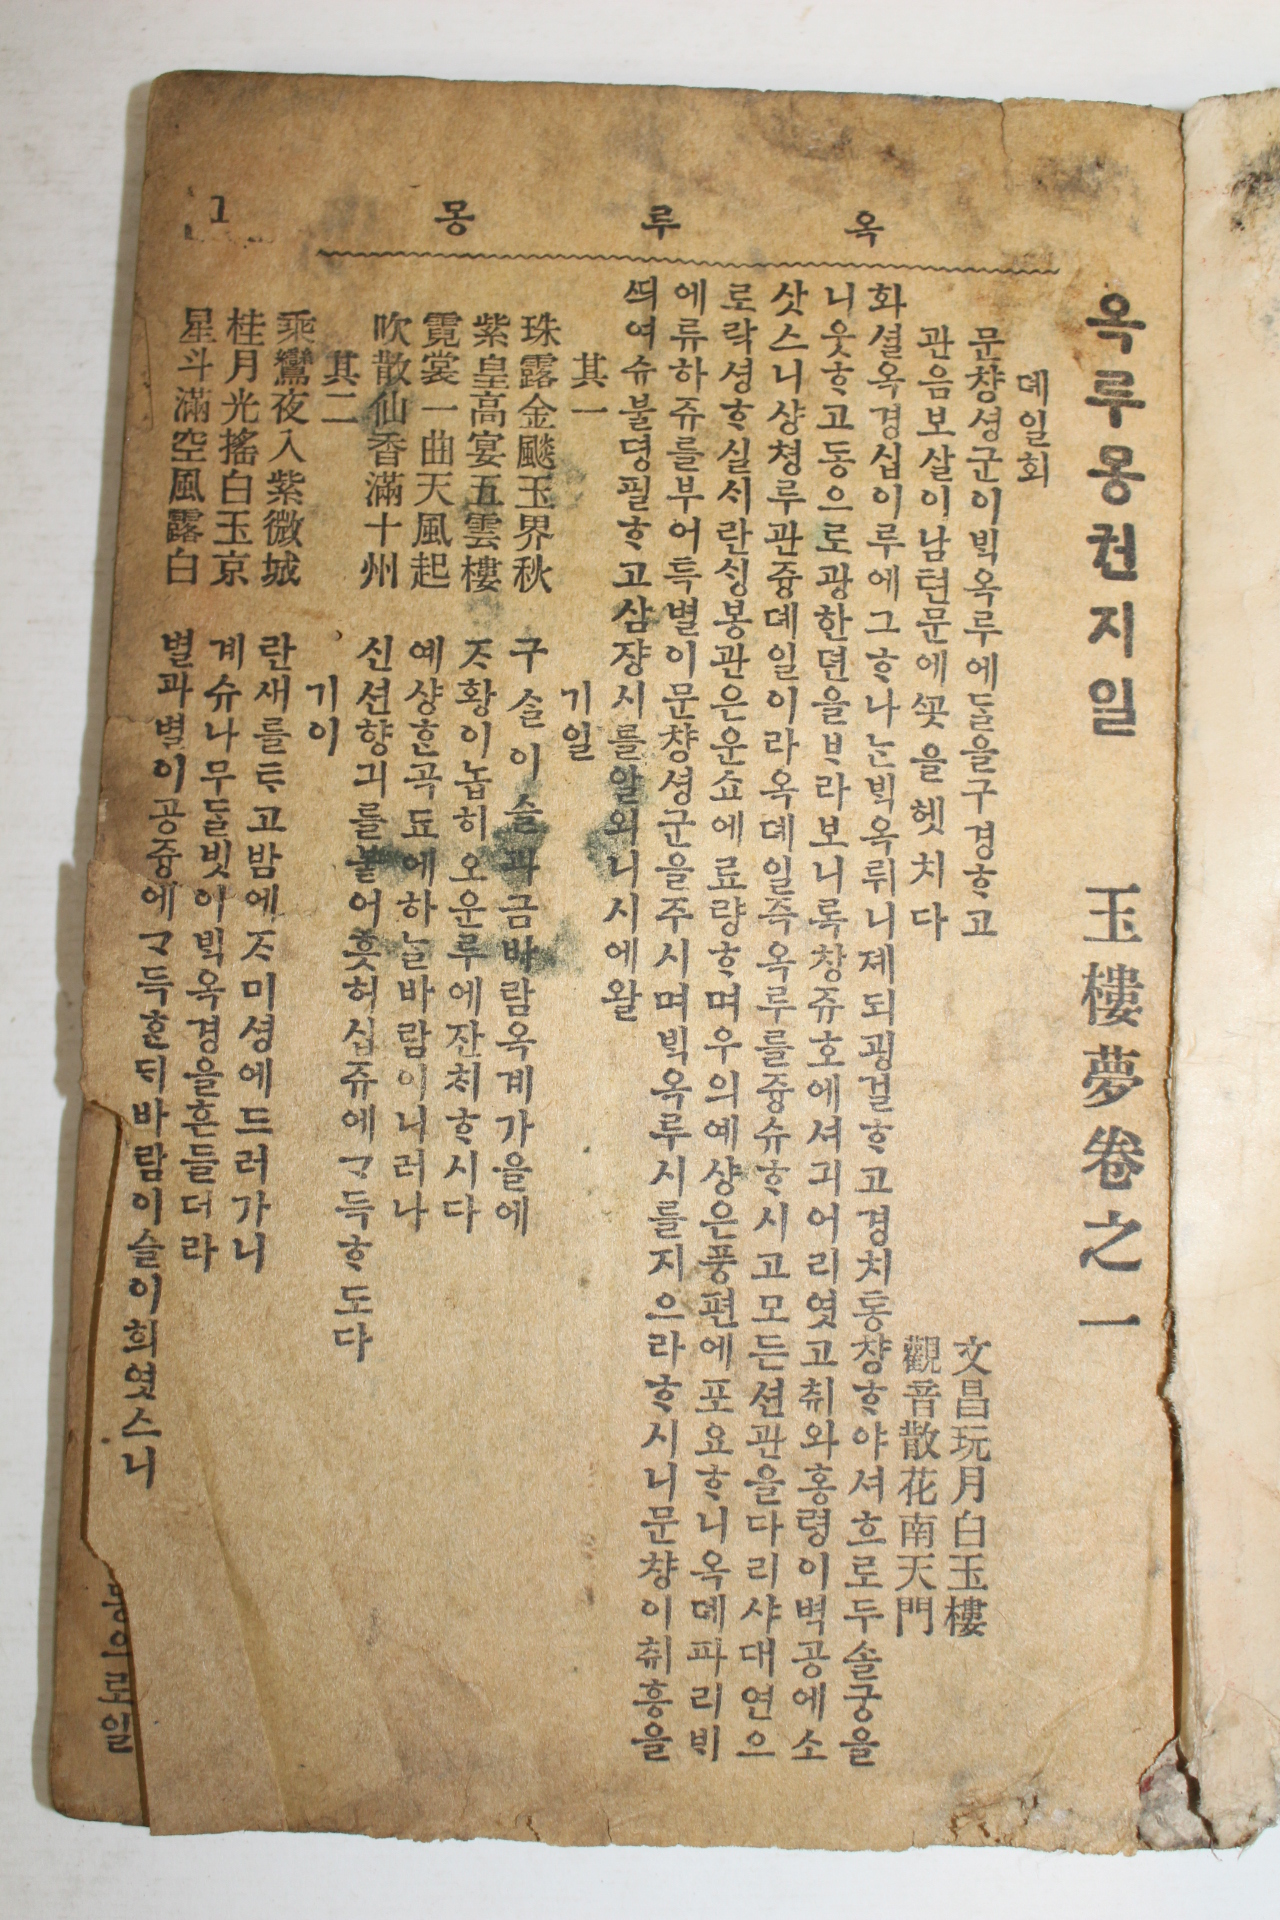 옥루몽
1
옥루몽권지일 玉樓夢卷之一
뎨일회
문챵셩군이ᄇᆡᆨ옥루에ᄃᆞᆯ을구경ᄒᆞ고 文昌玩月白玉樓
관음보살이남텬문에ᄭᅩᆺ을헷치다 觀音散花南天門
화셜옥경십이루에그ᄒᆞ나는ᄇᆡᆨ옥뤼니졔되굉걸ᄒᆞ고경치통챵ᄒᆞ야셔흐로두솔궁을
니웃ᄒᆞ고동으로광한뎐을ᄇᆞ라보니록창쥬호에셔긔어리엿고취와홍령이벽공에소
삿스니샹쳥루관즁뎨일이라옥뎨일즉옥루를즁슈ᄒᆞ시고모든션관을다리샤대연으
로락셩ᄒᆞ실ᄉᆡ란ᄉᆡᆼ봉관은운쇼에료량ᄒᆞ며우의예샹은풍편에포요ᄒᆞ니옥뎨파리ᄇᆡ
에류하쥬를부어특별이문챵셩군을주시며ᄇᆡᆨ옥루시를지으라ᄒᆞ시니문챵이취흥을
ᄯᅴ여슈불뎡필ᄒᆞ고삼쟝시를알외니시에왈
其一 기일
珠露金颷玉界秋 구슬이슬과금바람옥계가을에
紫皇高宴五雲樓 ᄌᆞ황이놉히오운루에잔ᄎᆡᄒᆞ시다
霓裳一曲天風起 예샹ᄒᆞᆫ곡됴에하ᄂᆞᆯ바람이니러나
吹散仙香滿十州 신션향긔를불어흣허십쥬에ᄀᆞ득ᄒᆞ도다
其二 기이
乘鸞夜入紫微城 란새를ᄐᆞ고밤에ᄌᆞ미셩에드러가니
桂月光搖白玉京 계슈나무ᄃᆞᆯ빗이ᄇᆡᆨ옥경을흔들더라
星斗滿空風露白 별과별이공즁에ᄀᆞ득ᄒᆞᆫᄃᆡ바람이슬이희엿스니
으로일